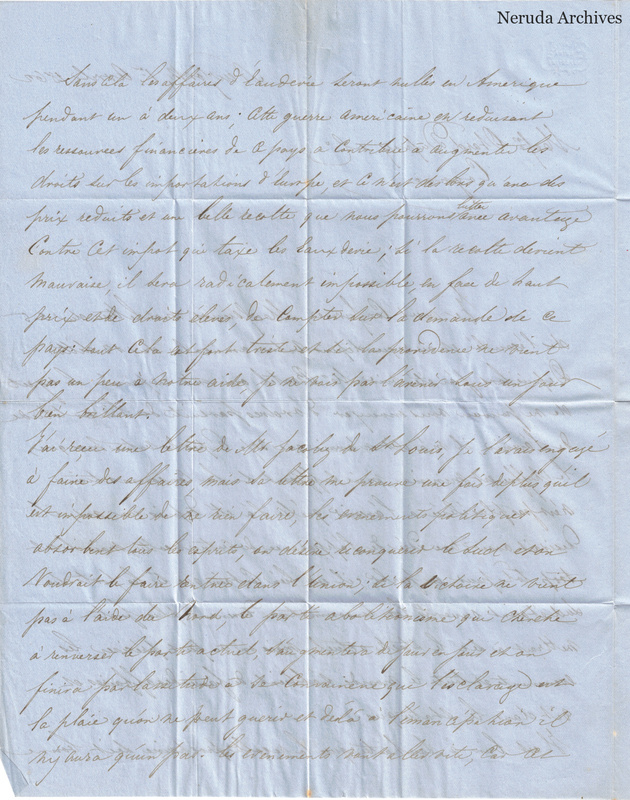 Neruda Archives
Sans cela les affaires d'eaudevie seront nulles en Amerique
pendant un à deux ans; cette guerre americaine en reduisant
les ressources financieres de ce pays a contribué à augmenter les
droits sur les importations d'Europe, et ce n'est des lors qu'avec des
prix reduits et un belle recolte que nous pourrons lutter avec avantage
contre cet impot qui taxe les Eauxdevie; si la recolte devient
mauvaise, il sera radicalement impossible, en face de haut
prix et de droits élevés, de compter sur la demande de ce
pays: tout cela est fort triste et si la providence ne vient
pas un peu à notre aide, je ne vois pas l'avenir sous un jour
bien brillant.
J'ai reçu une lettre de Mr Jacoby de St Louis, je l'avais engagé
à faire des affaires mais sa lettre me prouve une fois de plus qu'il
est impossible de rien faire, les evenements politiques
absorbent tous les esprits, on désire reconquerir le Sud et on
voudrait le faire rentrer dans l'Union; si la victoire ne vient
pas à l'aide du Nord, le parti abolitionisme qui cherche
a renverser le parti actuel, s'augmentera de jour en jour et on
finira par l'avoir a sa convaincre que l'esclavage est
la plaie qu'on ne peut guerir et de là à l'emancipation il
n'y aura qu'un pas. Les evenements vont aller vite, car cet